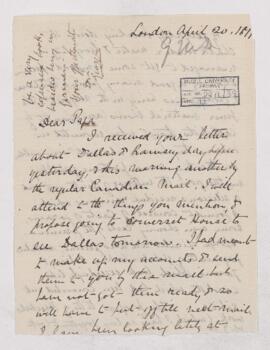 London April 20. 189
Dear Papa
I received your letter
about Dallas & Ramsey day before
yesterday, & this morning another by
the regular Canadian Mail. I will
attend to the things you mention &
propose going to Somerset House to
see Dallas tomorrow. I had meant
to make up my accounts & send
them to you by this mail but
have not got them ready & so
will have to put off till next mail.
I have been looking lately at
be a very
besides being